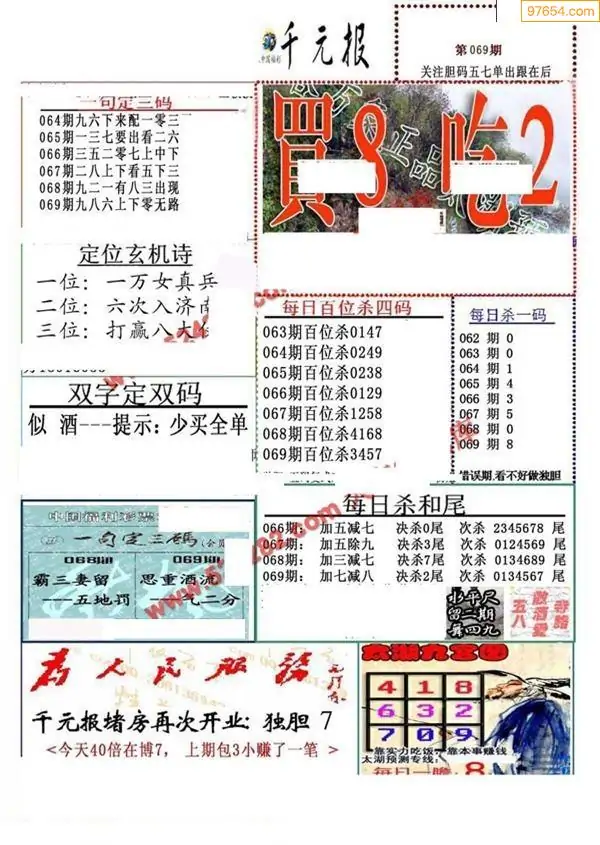 97654.com
千元报
第069期
关注胆码五七单出跟在后
一句定三码
064期九六下来配一零三
065期一三七要出看二六
066期三五二零七上中下
067期二八上下看五下三
068期九二一有八三出现
069期九八六上下零无路
買8 吃2
定位玄机诗
一位：一万女真兵
二位：六次入济南
三位：打赢八大
每日百位杀四码
063期百位杀0147
064期百位杀0249
065期百位杀0238
066期百位杀0129
067期百位杀1258
068期百位杀4168
069期百位杀3457
每日杀一码
062 期 0
063 期 0
064 期 1
065 期 4
066 期 3
067 期 5
068 期 0
069 期 8
错误期,看不好做独胆
双字定双码
似 酒---提示：少买全单
中国福利彩票
一句定三码
068期
069期
霸三妻留
——五地罚
思重酒流
——气二分
每日杀和尾
066期： 加五减七 决杀0尾 次杀 2345678 尾
067期： 加五除九 决杀3尾 次杀 0124569 尾
068期： 加三减七 决杀7尾 次杀 0134689 尾
069期： 加七减八 决杀2尾 次杀 0134567 尾
北平尺
留二期
舞四九
五八
散酒爱
寺路
为人民服务
千元报堵房再次开业：独胆 7
<今天40倍在博7， 上期包3小赚了一笔 >
太湖九宫图
4 1 8
6 3 2
7 0 9
靠实力吃饭，靠本事赚钱
太湖预测专线：
每日一胆 8